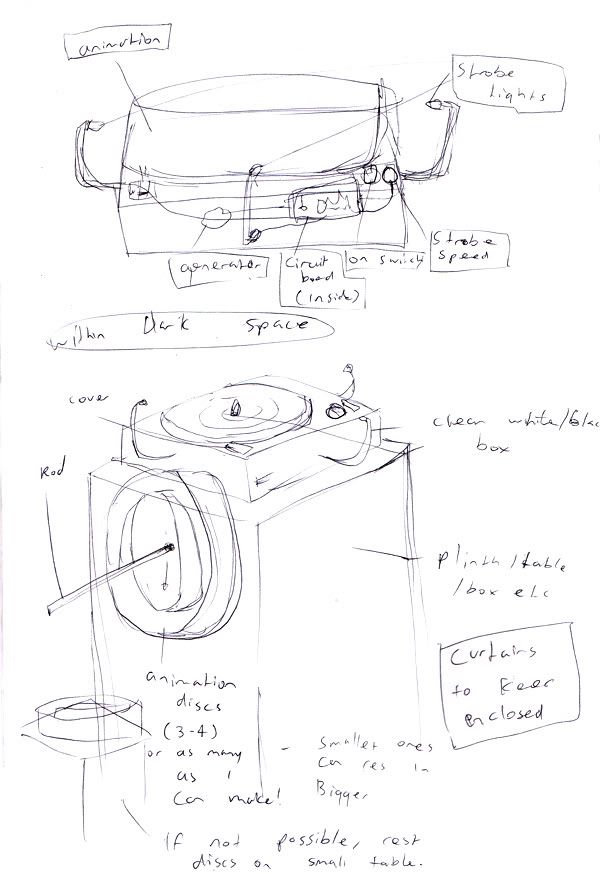 animation
Strobe
lights
Strobe
Speed
on switch
generator
Circuit
board
(inside)
within Dark space
cover
clean white/blac
box
Rod
plinth/table
/box etc
Curtains
to keep
enclosed
animation
discs
(3-4)
or as many
as I
can make!
- Smaller ones
can res in
Bigger
If not possible, rest
discs on small table.